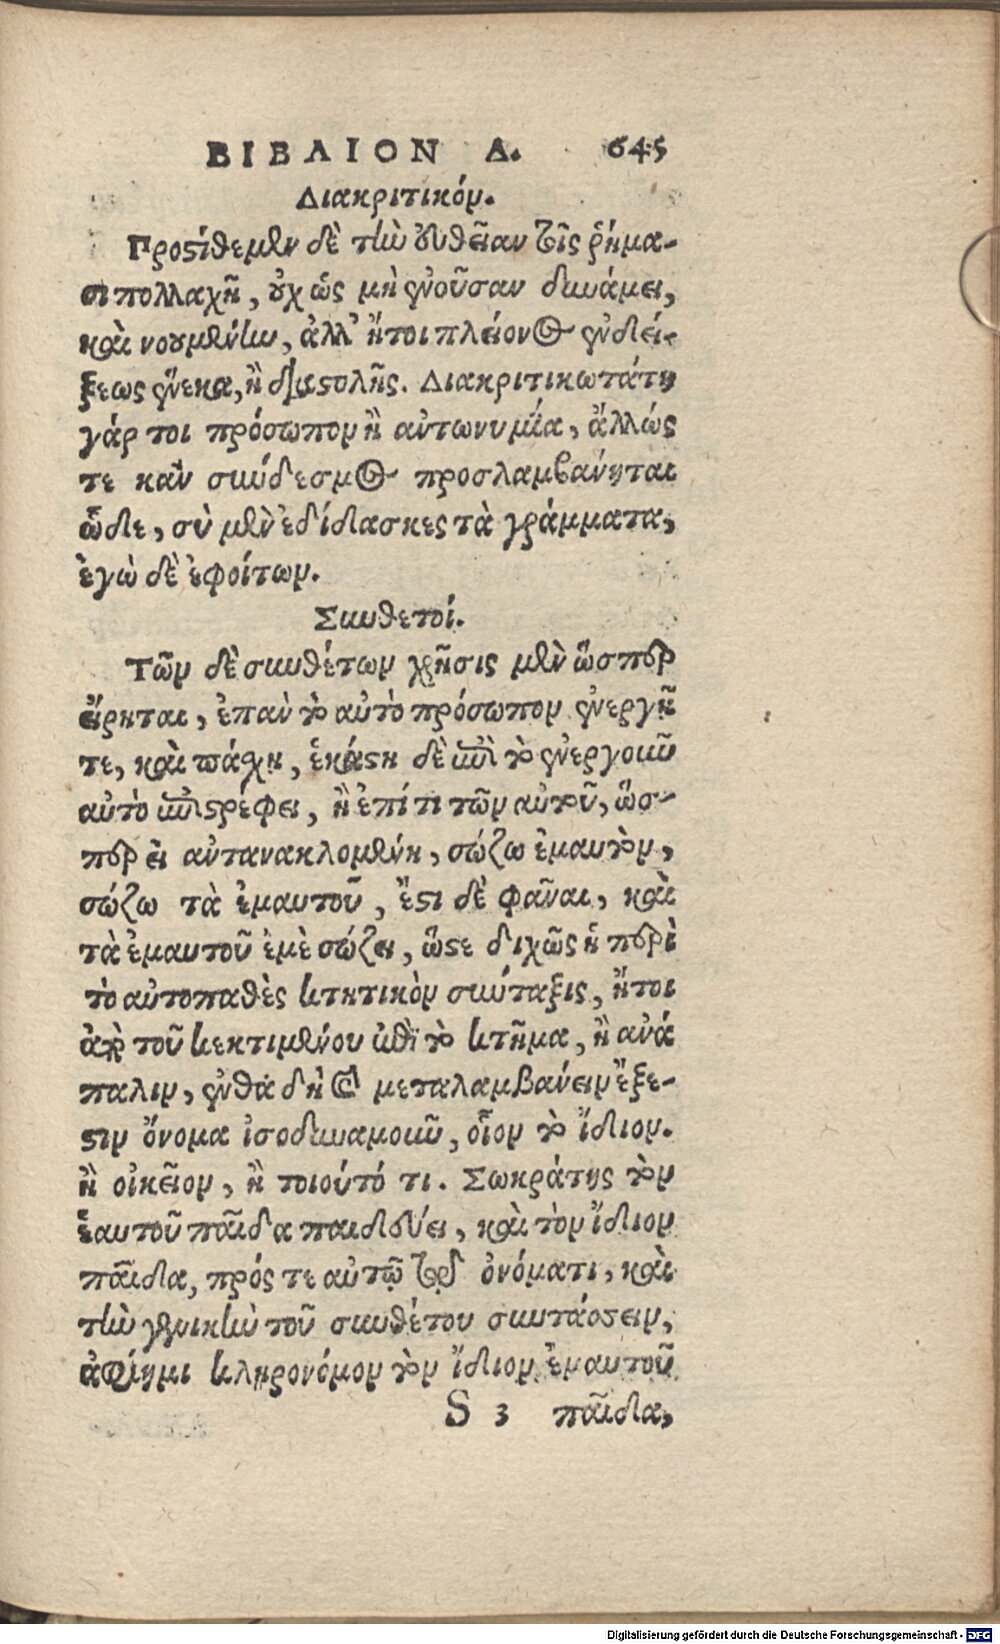 ΒΙΒΛΙΟΝ Δ. 645
Διακριτικόν.
Προστίθεμεν δὲ τὴν εὐθεῖαν τοῖς ῥήμα-
σι πολλαχῆ, οὐχ ὡς μὴ ἐνοῦσαν δυνάμει,
καὶ νουμένην, ἀλλ' ἤτοι πλείονος ἐνδεί-
ξεως ἕνεκα, ἢ διαστολῆς. Διακριτικωτάτη
γάρ τοι πρόσωπον ἢ αὐτωνυμία, ἄλλώς
τε κἀν σύνδεσμος προσλαμβάνηται
ὧδε, σὺ μὲν ἐδίδασκες τὰ γράμματα,
ἐγὼ δὲ ἐφοίτων.
Συνθετοί.
Τῶν δὲ συνθέτων χρῆσις μὲν ὥσπερ
εἴρηται, ἐπαν τὸ αὐτὸ πρόσωπον ἐνεργῇ
τε, καὶ πάσχῃ, ἑκάστη δὲ ἐπὶ τὸ ἐνεργοῦν
αὐτὸ ἐπιστρέφει, ἢ ἐπί τι τῶν αὐτοῦ, ὥσ-
περ εἰ αὐτανακλομένη, σώζω ἐμαυτὸν,
σώζω τὰ ἐμαυτοῦ, ἔστι δὲ φᾶναι, καὶ
τὰ ἐμαυτοῦ ἐμὲ σώζει, ὥστε διχῶς ἡ περὶ
τὸ αὐτοπαθὲς κτητικὸν σύνταξις, ἤτοι
ἀπὸ τοῦ κεκτιμένου ἐπὶ τὸ κτῆμα, ἢ ἀνά
παλιν, ἔνθα δὴ καὶ μεταλαμβάνειν ἔξε-
στιν ὄνομα ἰσοδυναμοῦν, οἷον τὸ ἴδιον.
ἢ οἰκεῖον, ἢ τοιούτό τι. Σωκράτης τὸν
ἑαυτοῦ παῖδα παιδεύει, καὶ τὸν ἴδιον
παῖδα, πρός τε αὐτῷ τῷ ὀνόματι, καὶ
τὴν γενικὴν τοῦ συνθέτου συντάσσειν,
ἀφίημι κληρονόμον τὸν ἴδιον ἐμαυτοῦ
S 3 παῖδα,
Digitalisierung gefördert durch die Deutsche Forschungsgemeinschaft - DFG